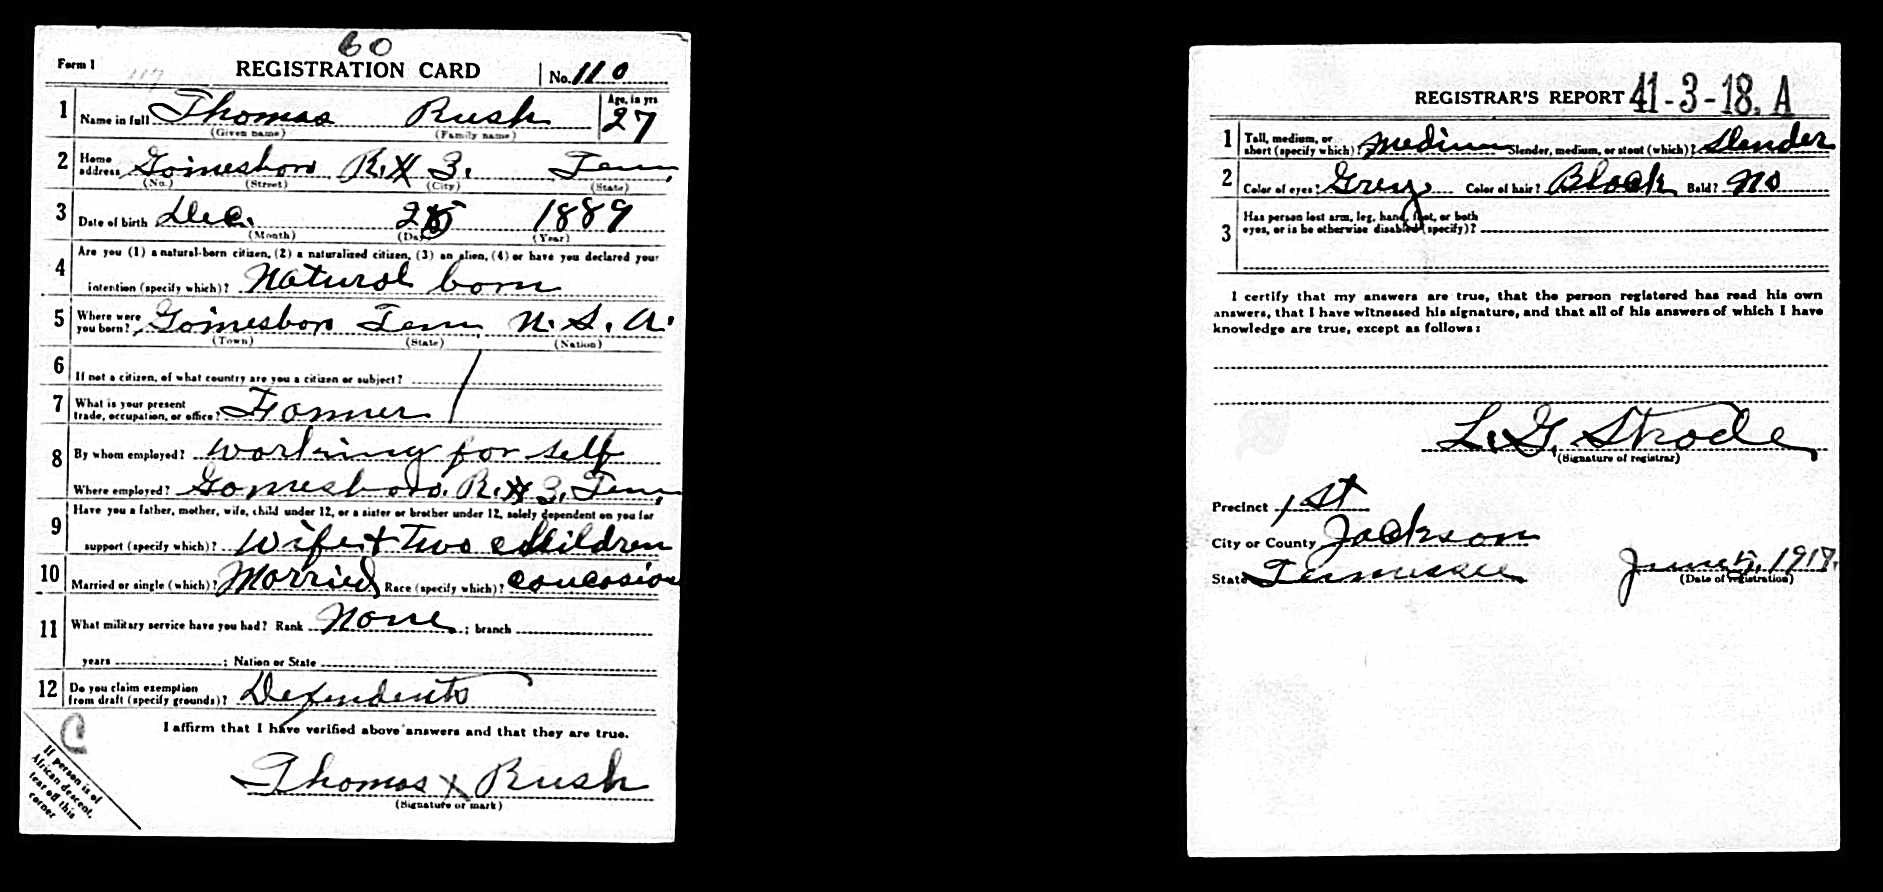 60
Form 1 117 REGISTRATION CARD No. 110
1 Name in full Thomas Rush Age, in yrs 27
(Given name) (Family name)
2 Home address Gainesboro R.# 3. Tenn.
(No.) (Street) (City) (State)
3 Date of birth Dec. 25 1889
(Month) (Day) (Year)
4 Are you (1) a natural-born citizen, (2) a naturalized citizen, (3) an alien, (4) or have you declared your
intention (specify which)? Natural born
5 Where were you born? Gainesboro Tenn U. S. A.
(Town) (State) (Nation)
6 If not a citizen, of what country are you a citizen or subject?
7 What is your present
trade, occupation, or office? Farmer
8 By whom employed? working for self
Where employed? Gainesboro. R.# 3. Tenn.
9 Have you a father, mother, wife, child under 12, or a sister or brother under 12, solely dependent on you for
support (specify which)? Wife + Two children
10 Married or single (which)? Married Race (specify which)? Caucasion
11 What military service have you had? Rank None ; branch
years ; Nation or State
12 Do you claim exemption
from draft (specify grounds)? Dependents
I affirm that I have verified above answers and that they are true.
Thomas X Rush
(Signature or mark)
C
If person is of
African descent,
tear off this
corner
REGISTRAR'S REPORT 41-3-18. A
1 Tall, medium, or
short (specify which)? Medium Slender, medium, or stout (which)? Slender
2 Color of eyes? Grey Color of hair? Black Bald? No
3 Has person lost arm, leg, hand, foot, or both
eyes, or is he otherwise disabled (specify)?
I certify that my answers are true, that the person registered has read his own
answers, that I have witnessed his signature, and that all of his answers of which I have
knowledge are true, except as follows:
L. G. Strode
(Signature of registrar)
Precinct 1st
City or County Jackson
State Tennessee June 5, 1917.
(Date of registration)